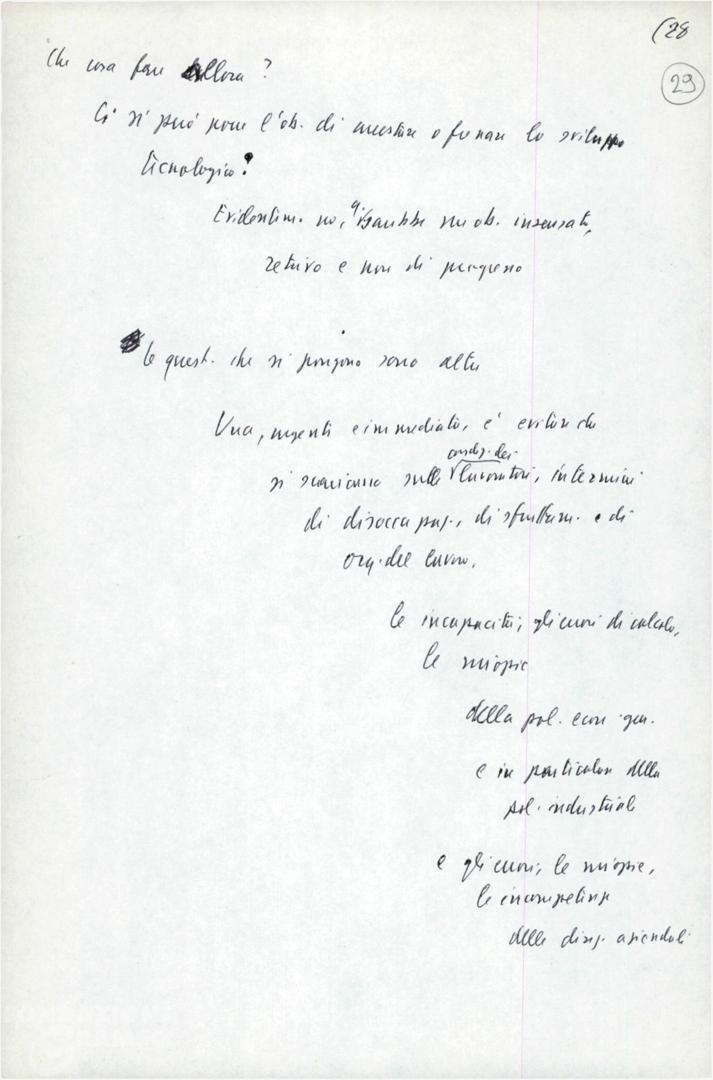 (28
29
Che cosa fare allora?
Ci si può porre l'ob. di arrestare o frenare lo sviluppo
tecnologico?
Evidentem. no, sarebbe un ob. insensato,
retrivo e non di progresso
le quest. che si pongono sono altre
Una, urgente e immediata, è evitare che
condiz. dei
si scarichino sulle lavoratori, in termini
di disoccupaz., di sfruttam. e di
org. del lavoro,
le incapacità, gli errori di calcolo,
le miopie
della pol. econ. gen.
e in particolare della
pol. industriale
e gli errori, le miopie,
le incompetenze
delle direz. aziendali